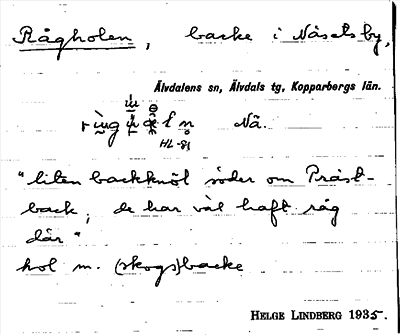 Rågholen, backe i Näsets by,
Älvdalens sn, Älvdals tg, Kopparbergs län.
Nä.
"liten backknöl söder om Präst-
back, de har väl haft råg
där"
hol m. (skogs)backe
HELGE LINDBERG 1935.